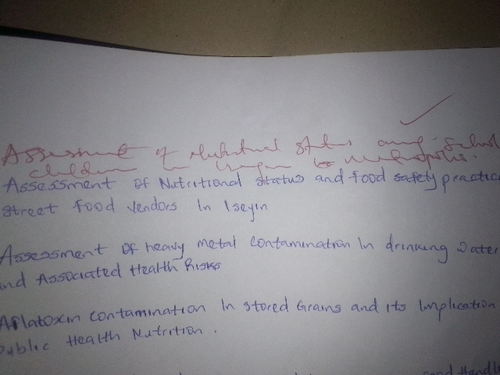 Assessment of Nutritional status among School
children in
Assessment of Nutritional status and food safety practice
street food vendors in Iseyin
Assessment of heavy metal contamination in drinking water
and Associated Health Risks
Aflatoxin contamination in stored Grains and its Implication
Public Health Nutrition.
food Handl